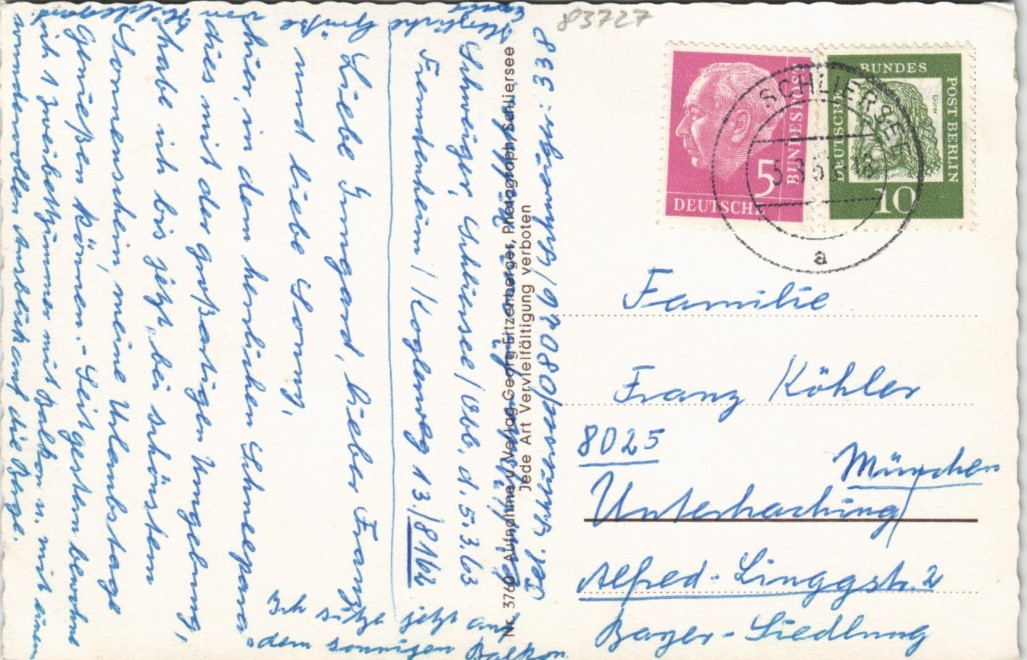 83727
DEUTSCHE
BUNDESPOST
5
DEUTSCHE
BUNDES
POST BERLIN
10
SCHLIERSEE
a
Familie
Franz Köhler
8025
München
Unterhaching
Alfred-Linggstr. 2
Bayer-Siedlung
Nr. 3760 Aufnahme u. Verlag Georg Eitzenberger, Photograph, Schliersee
Jede Art Vervielfältigung verboten
Schwaiger, Schliersee/Obb, d. 5.3.63
Fremdenheim/Koglerweg 13./8162
Liebe Irmgard, lieber Franz
und liebe Conny,
hier, in dem herrlichen Schneepara-
dies mit der großartigen Umgebung,
habe ich bis jetzt, bei schönsten
Sonnenschein, meine Urlaubstage
genießen können.- Seit gestern bewohne
ich 1 Zweibettzimmer mit Balkon u. mit einem
wundervollen Ausblick auf die Berge.
Ich sitze jetzt auf
dem sonnigen Balkon
Herzliche
Grüße